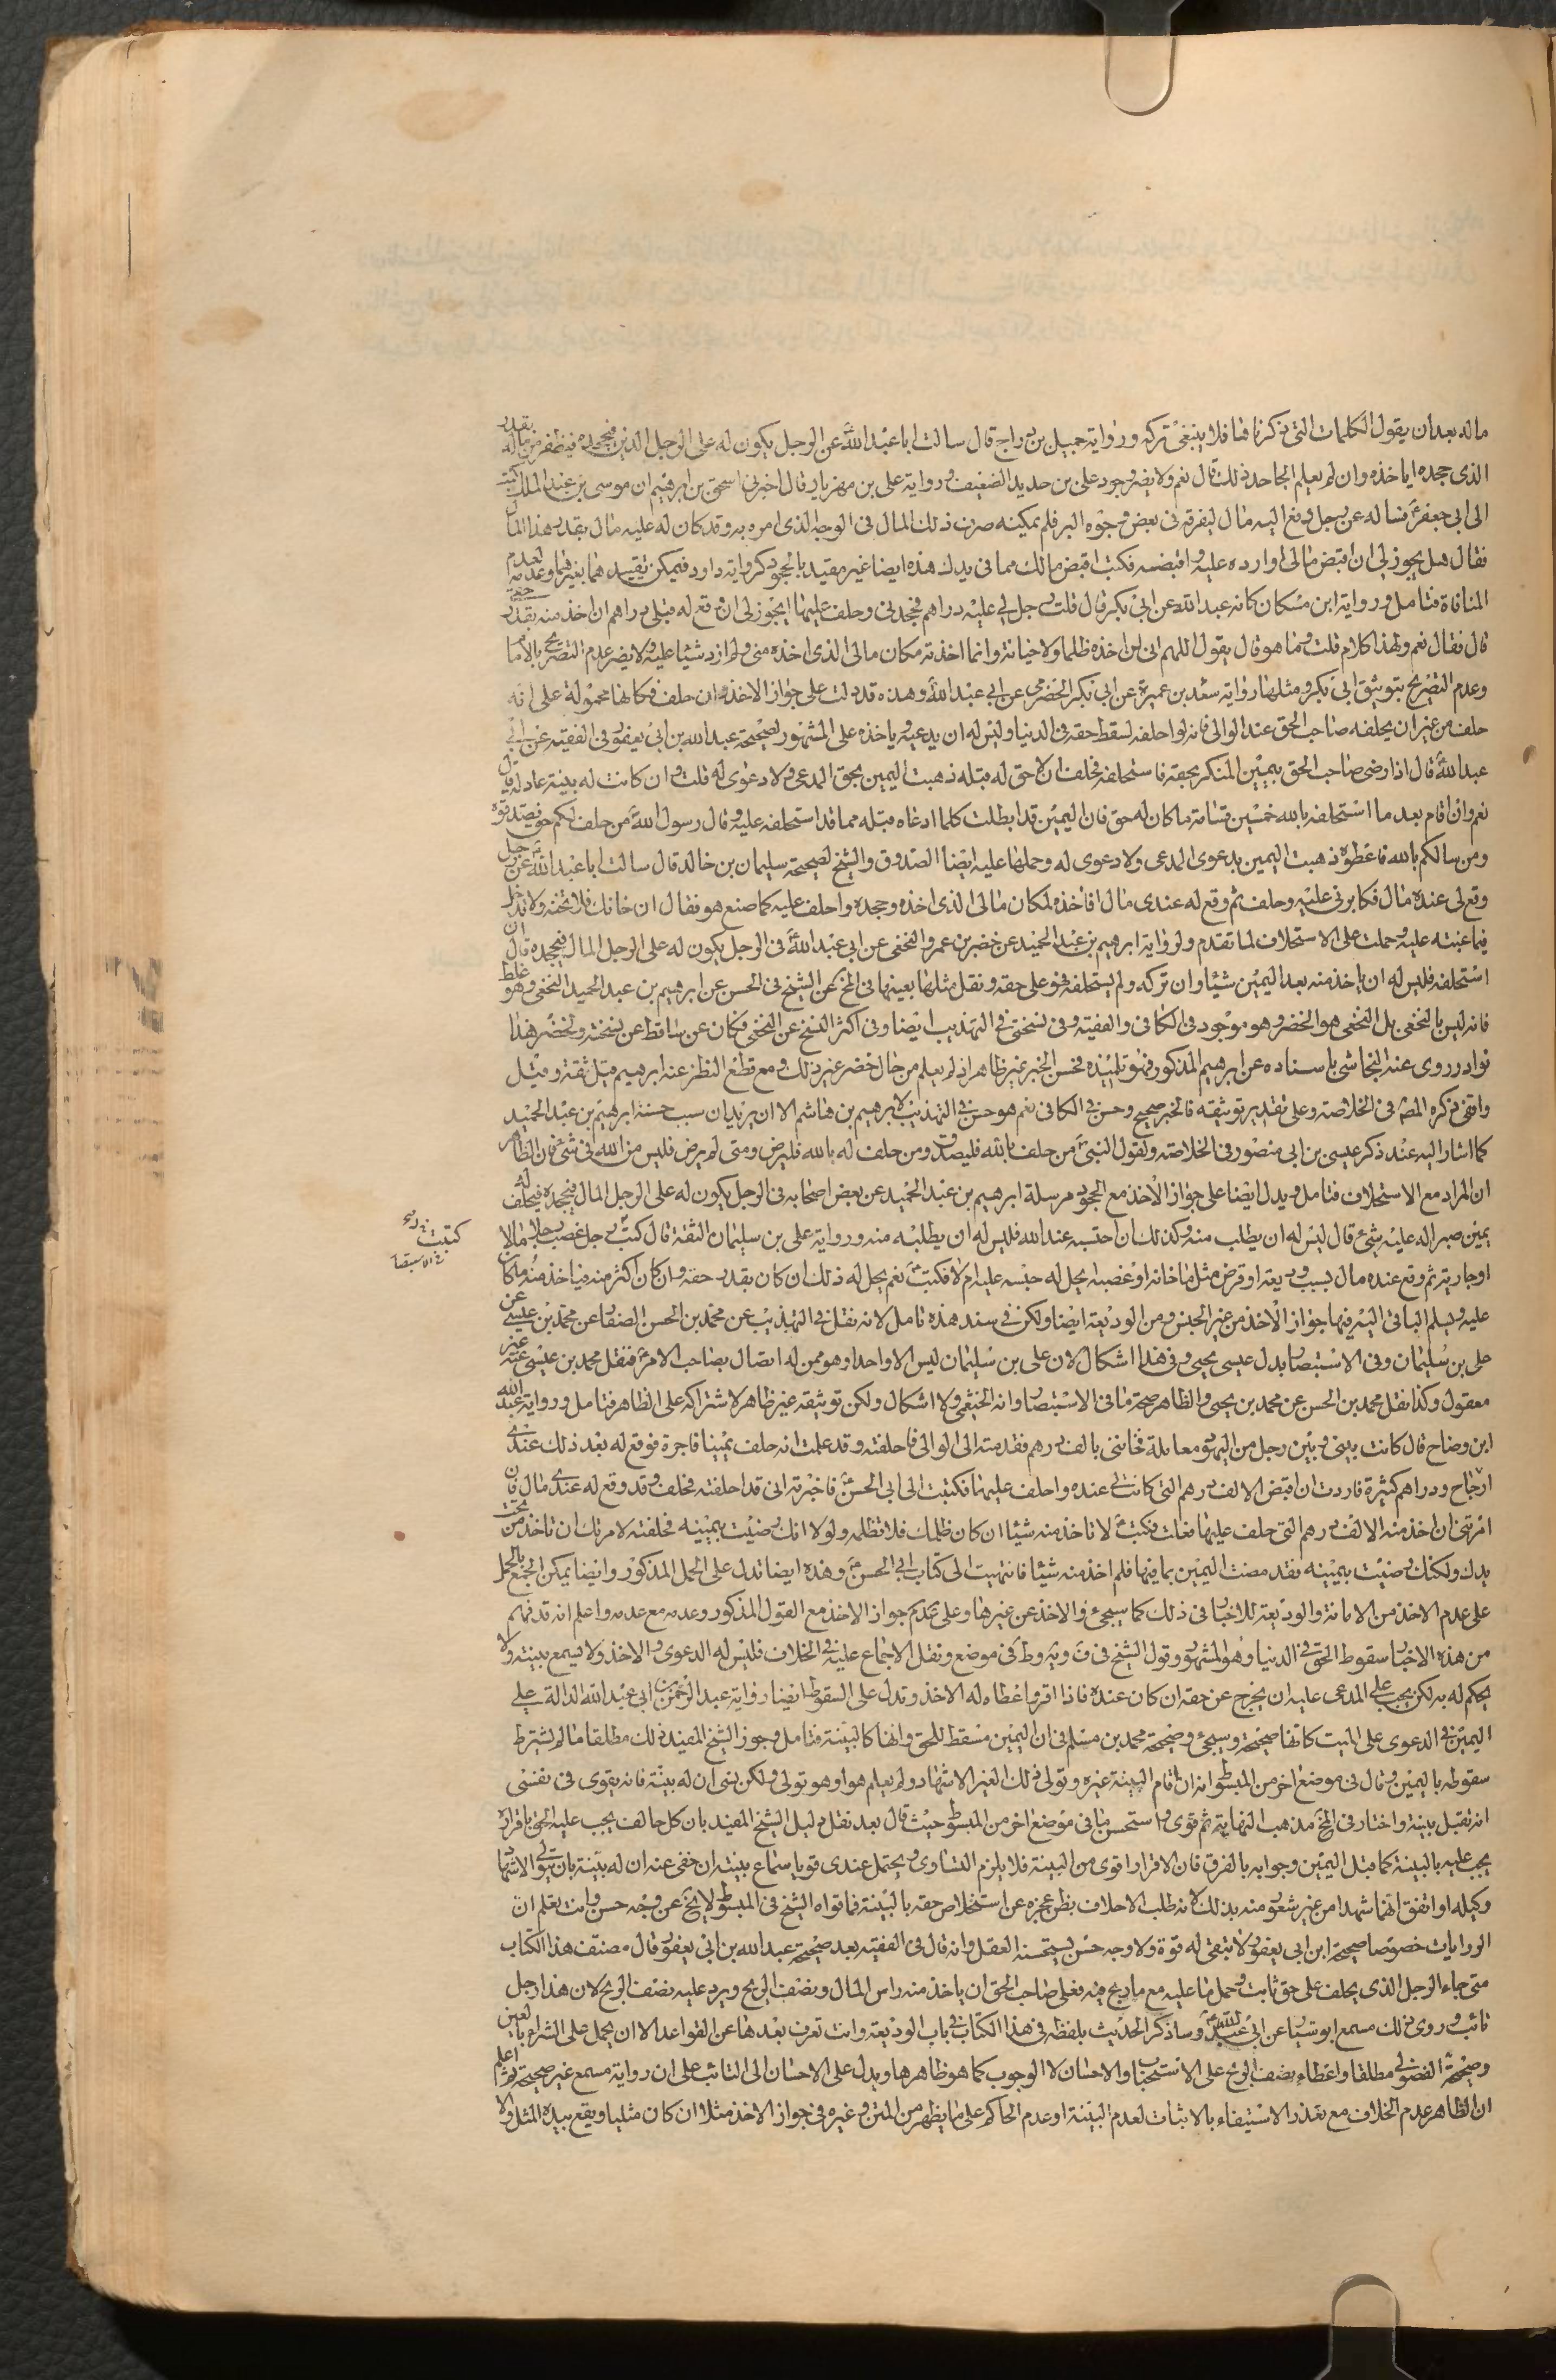 ماله بعد ان يقول الكلمات التى ذكرناها فلا ينبغى تركه ورواية جميل بن دراج قال سالت ابا عبد الله عن الرجل يكون له على الرجل الدين فيجحده فيظفر من ماله بقدر
الذى جحده اياخذه وان لم يعلم الجاحد ذلك قال نعم ولا يضر وجود على بن حديد الضعيف ورواية على بن مهزيار قال اخبرنى اسحق بن ابرهيم ان موسى بن عبد الملك كتب
الى ابى جعفر يساله عن رجل دفع اليه مال ليفرقه فى بعض وجوه البر فلم يمكنه صرف ذلك المال فى الوجه الذى امره به وقد كان له عليه مال بقدر هذا المال
فقال هل يجوز لى ان اقبض مالى او ارده عليه واقبضه فكتب اقبض مالك مما فى يدك هذه ايضا غير مقيد بالجحود كرواية داود فيمكن تقييدهما بغيرهما وعدمه لعدم
المنافاة فتامل ورواية ابن مسكان كانه عبد الله عن ابى بكر قال قلت رجل لى عليه دراهم فجحدنى وحلف عليها ايجوز لى ان وقع له قبلى دراهم ان اخذ منه بقدر حقى
قال فقال نعم ولهذا كلام قلت وما هو قال يقول اللهم انى لن اخذه ظلما ولا خيانة وانما اخذته مكان مالى الذى اخذه منى ولم ازد شيئا عليه ولا يضر عدم التصريح بالامام
وعدم التصريح بتوثيق ابى بكر ومثلها رواية سعد بن عميرة عن ابى بكر الحضرمى عن ابى عبد الله وهذه قد دلت على جواز الاخذ وان حلف فكانها محمولة على انه
حلف من غير ان يحلفه صاحب الحق عند الوالى فانه لو احلفه لسقط حقه فى الدنيا وليس له ان يدعيه وياخذه على المشهور لصحيحة عبد الله بن ابى يعفور فى الفقيه عن ابى
عبد الله قال اذا رضى صاحب الحق بيمين المنكر بحقه فاستحلفه فحلف ان لا حق له قبله ذهبت اليمين بحق المدعى ولا دعوى له قلت وان كانت له بينة عادلة قال
نعم وان اقام بعد ما استحلفه بالله خمسين قسامة ما كان له حق فان اليمين قد ابطلت كلما ادعاه قبله مما قد استحلفه عليه وقال رسول الله من حلف لكم فصدقوه
ومن سالكم بالله فاعطوه ذهبت اليمين بدعوى المدعى ولا دعوى له وحملها عليه ايضا الصدوق والشيخ لصحيحة سليمان بن خالد قال سالت ابا عبد الله عن رجل
وقع لى عنده مال فكابرنى عليه وحلف ثم وقع له عندى مال افاخذه لمكان مالى الذى اخذه وجحده واحلف عليه كما صنع هو فقال ان خانك فلا تخنه ولا تدخل
فيما عبته عليه وحملت على الاستحلاف لما تقدم ولرواية ابرهيم بن عبد الحميد عن خضر بن عمرو النخعى عن ابى عبد الله فى الرجل يكون له على الرجل المال فيجحده قال ان
استحلفه فليس له ان ياخذ منه بعد اليمين شيئا وان تركه ولم يستحلفه فهو على حقه ونقل مثلها بعينها فى المخ عن الشيخ فى الحسن عن ابرهيم بن عبد الحميد النخعى وهو غلط
فانه ليس بالنخعى بل النخعى هو الخضر وهو موجود فى الكافى والفقيه وفى نسختى فى التهذيب ايضا وفى اكثر النسخ عن النخعى فكان عن ساقط عن نسخته ولخضر هذا
نوادر روى عنه النجاشى باسناده عن ابرهيم المذكور فهو تلميذه فحسن الخبر غير ظاهر اذ لم يعلم من حال خضر غير ذلك ومع قطع النظر عنه ابرهيم قيل ثقة وقيل
واقفى ذكره المصـ فى الخلاصة وعلى تقدير توثيقه فالخبر صحيح وحسن فى الكافى نعم هو حسن فى التهذيب لابرهيم بن هاشم الا ان يريد ان سبب حسنه ابرهيم بن عبد الحميد
كما اشار اليه عند ذكر عيسى بن ابى منصور فى الخلاصة ولقول النبى من حلف بالله فليصدق ومن حلف له بالله فليرض ومتى لم يرض فليس من الله فى شئ فان الظاهر
ان المراد مع الاستحلاف فتامل ويدل ايضا على جواز الاخذ مع الجحود مرسلة ابرهيم بن عبد الحميد عن بعض اصحابه فى الرجل يكون له على الرجل المال فيجحده فيحلف له
يمين صبر اله عليه شئ قال ليس له ان يطلب منه وكذلك ان احتسبه عند الله فليس له ان يطلبه منه ورواية على بن سليمان الثقة قال كتب رجل غصب رجلا مالا
او جارية ثم وقع عنده مال بسبب وديعة او قرض مثل ما خانه او غصبه ايحل له حبسه عليه ام لا فكتب نعم يحل له ذلك ان كان بقدر حقه وان كان اكثر منه فياخذ منه ما كان
عليه ويسلم الباقى اليه فيها جواز الاخذ من غير الجنس ومن الوديعة ايضا ولكن فى سند هذه تامل لانه نقل فى التهذيب عن محمد بن الحسن الصفار عن محمد بن عيسى عن
على بن سليمان وفى الاستبصار بدل عيسى يحيى وفى هذا اشكال لان على بن سليمان ليس الا واحدا وهو ممن له اتصال بصاحب الامر فنقل محمد بن عيسى عنه غير
معقول وكذا نقل محمد بن الحسن عن محمد بن يحيى والظاهر صحة ما فى الاستبصار وانه الخثعمى ولا اشكال ولكن توثيقه غير ظاهر لاشتراكه على الظاهر فتامل ورواية عبد الله
ابن وضاح قال كانت بينى وبين رجل من اليهود معاملة فخاننى بالف درهم فقدمته الى الوالى فاحلفته وقد علمت انه حلف يمينا فاجرة فوقع له بعد ذلك عندى
ارباح ودراهم كثيرة فاردت ان اقبض الالف درهم التى كانت لى عنده واحلف عليها فكتبت الى ابى الحسن فاخبرته انى قد احلفته فحلف وقد وقع له عندى مال فان
امرتنى ان اخذ منه الالف درهم التى حلف عليها فعلت فكتب لا تاخذ منه شيئا ان كان ظلمك فلا تظلمه ولولا انك رضيت بيمينه فحلفته لامرتك ان تاخذ من تحت
يدك ولكنك رضيت بيمينه فقد مضت اليمين بما فيها فلم اخذ منه شيئا فانتهيت الى كتاب ابى الحسن وهذه ايضا تدل على الحمل المذكور وايضا يمكن الجمع بالحمل
على عدم الاخذ من الامانة والوديعة للاخبار فى ذلك كما سيجئ والاخذ عن غيرها وعلى تقديم جواز الاخذ مع القول المذكور وعدمه مع عدمه واعلم انه قد فهم
من هذه الاخبار سقوط الحق فى الدنيا وهو المشهور وقول الشيخ فى ف ويه وط فى موضع ونقل الاجماع عليه فى الخلاف فليس له الدعوى والاخذ ولا يسمع بينته ولا
يحكم له به لكن يجب على المدعى عليه ان يخرج عن حقه ان كان عنده فاذا اقر واعطاه له الاخذ وتدل على السقوط ايضا رواية عبد الرحمن بن ابى عبد الله الدالة على
اليمين فى الدعوى على الميت كانها صحيحة وسيجئ وصحيحة محمد بن مسلم فى ان اليمين مسقط للحق وانها كالبينة فتامل وجوز الشيخ المفيد ذلك مطلقا ما لم يشترط
سقوطه باليمين وقال فى موضع اخر من المبسوط انه ان اقام البينة غيره وتولى ذلك الغير الاشهاد ولم يعلم هو او هو تولى ولكن نسى ان له بينة فانه يقوى فى نفسى
انه تقبل بينته واختار فى المخ مذهب النهاية ثم قوى واستحسن ما فى موضع اخر من المبسوط حيث قال بعد نقل دليل الشيخ المفيد بان كل حالف يجب عليه الحق باقراره
يجب عليه بالبينة كما قبل اليمين وجوابه بالفرق فان الاقرار اقوى من البينة فلا يلزم التساوى ويحتمل عندى قويا سماع بينته ان خفى عنه ان له بينة بان يتولى الاشهاد
وكيله او اتفق انهما شهدا من غير شعور منه بذلك لانه طلب الاحلاف بظن عجزه عن استخلاص حقه بالبينة فما قواه الشيخ فى المبسوط لا يخ عن وجه حسن وانت تعلم ان
الروايات خصوصا صحيحة ابن ابى يعفور لا تبقى له قوة ولا وجه حسن يستحسنه العقل وانه قال فى الفقيه بعد صحيحة عبد الله بن ابى يعفور قال مصنف هذا الكتاب
متى جاء الرجل الذى يحلف على حق تائبا وحمل ما عليه مع ما ربح فيه فعلى صاحب الحق ان ياخذ منه راس المال ونصف الربح ويرد عليه نصف الربح لان هذا رجل
تائب وروى ذلك مسمع ابو سيار عن ابى عبد الله وساذكر الحديث بلفظه فى هذا الكتاب فى باب الوديعة وانت تعرف بعدها عن القواعد الا ان يحمل على الشراء بالعين
وصحة الفضولى مطلقا واعطاء نصف الربح على الاستحباب والاحسان لا الوجوب كما هو ظاهرها ويدل على الاحسان الى التائب على ان رواية مسمع غير صحيحة ثم اعلم
ان الظاهر عدم الخلاف مع تعذر الاستيفاء بالاثبات لعدم البينة او عدم الحاكم على ما يظهر من المتن وغيره فى جواز الاخذ مثلا ان كان مثليا ويقع بيده المثل والا